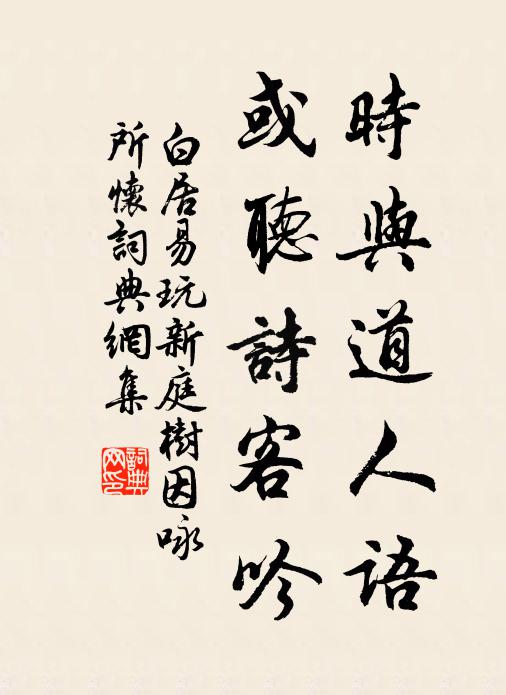 時與道人語
或聽詩客吟
白居易玩新庭樹因咏
所懷詞典網集
詞典
网印